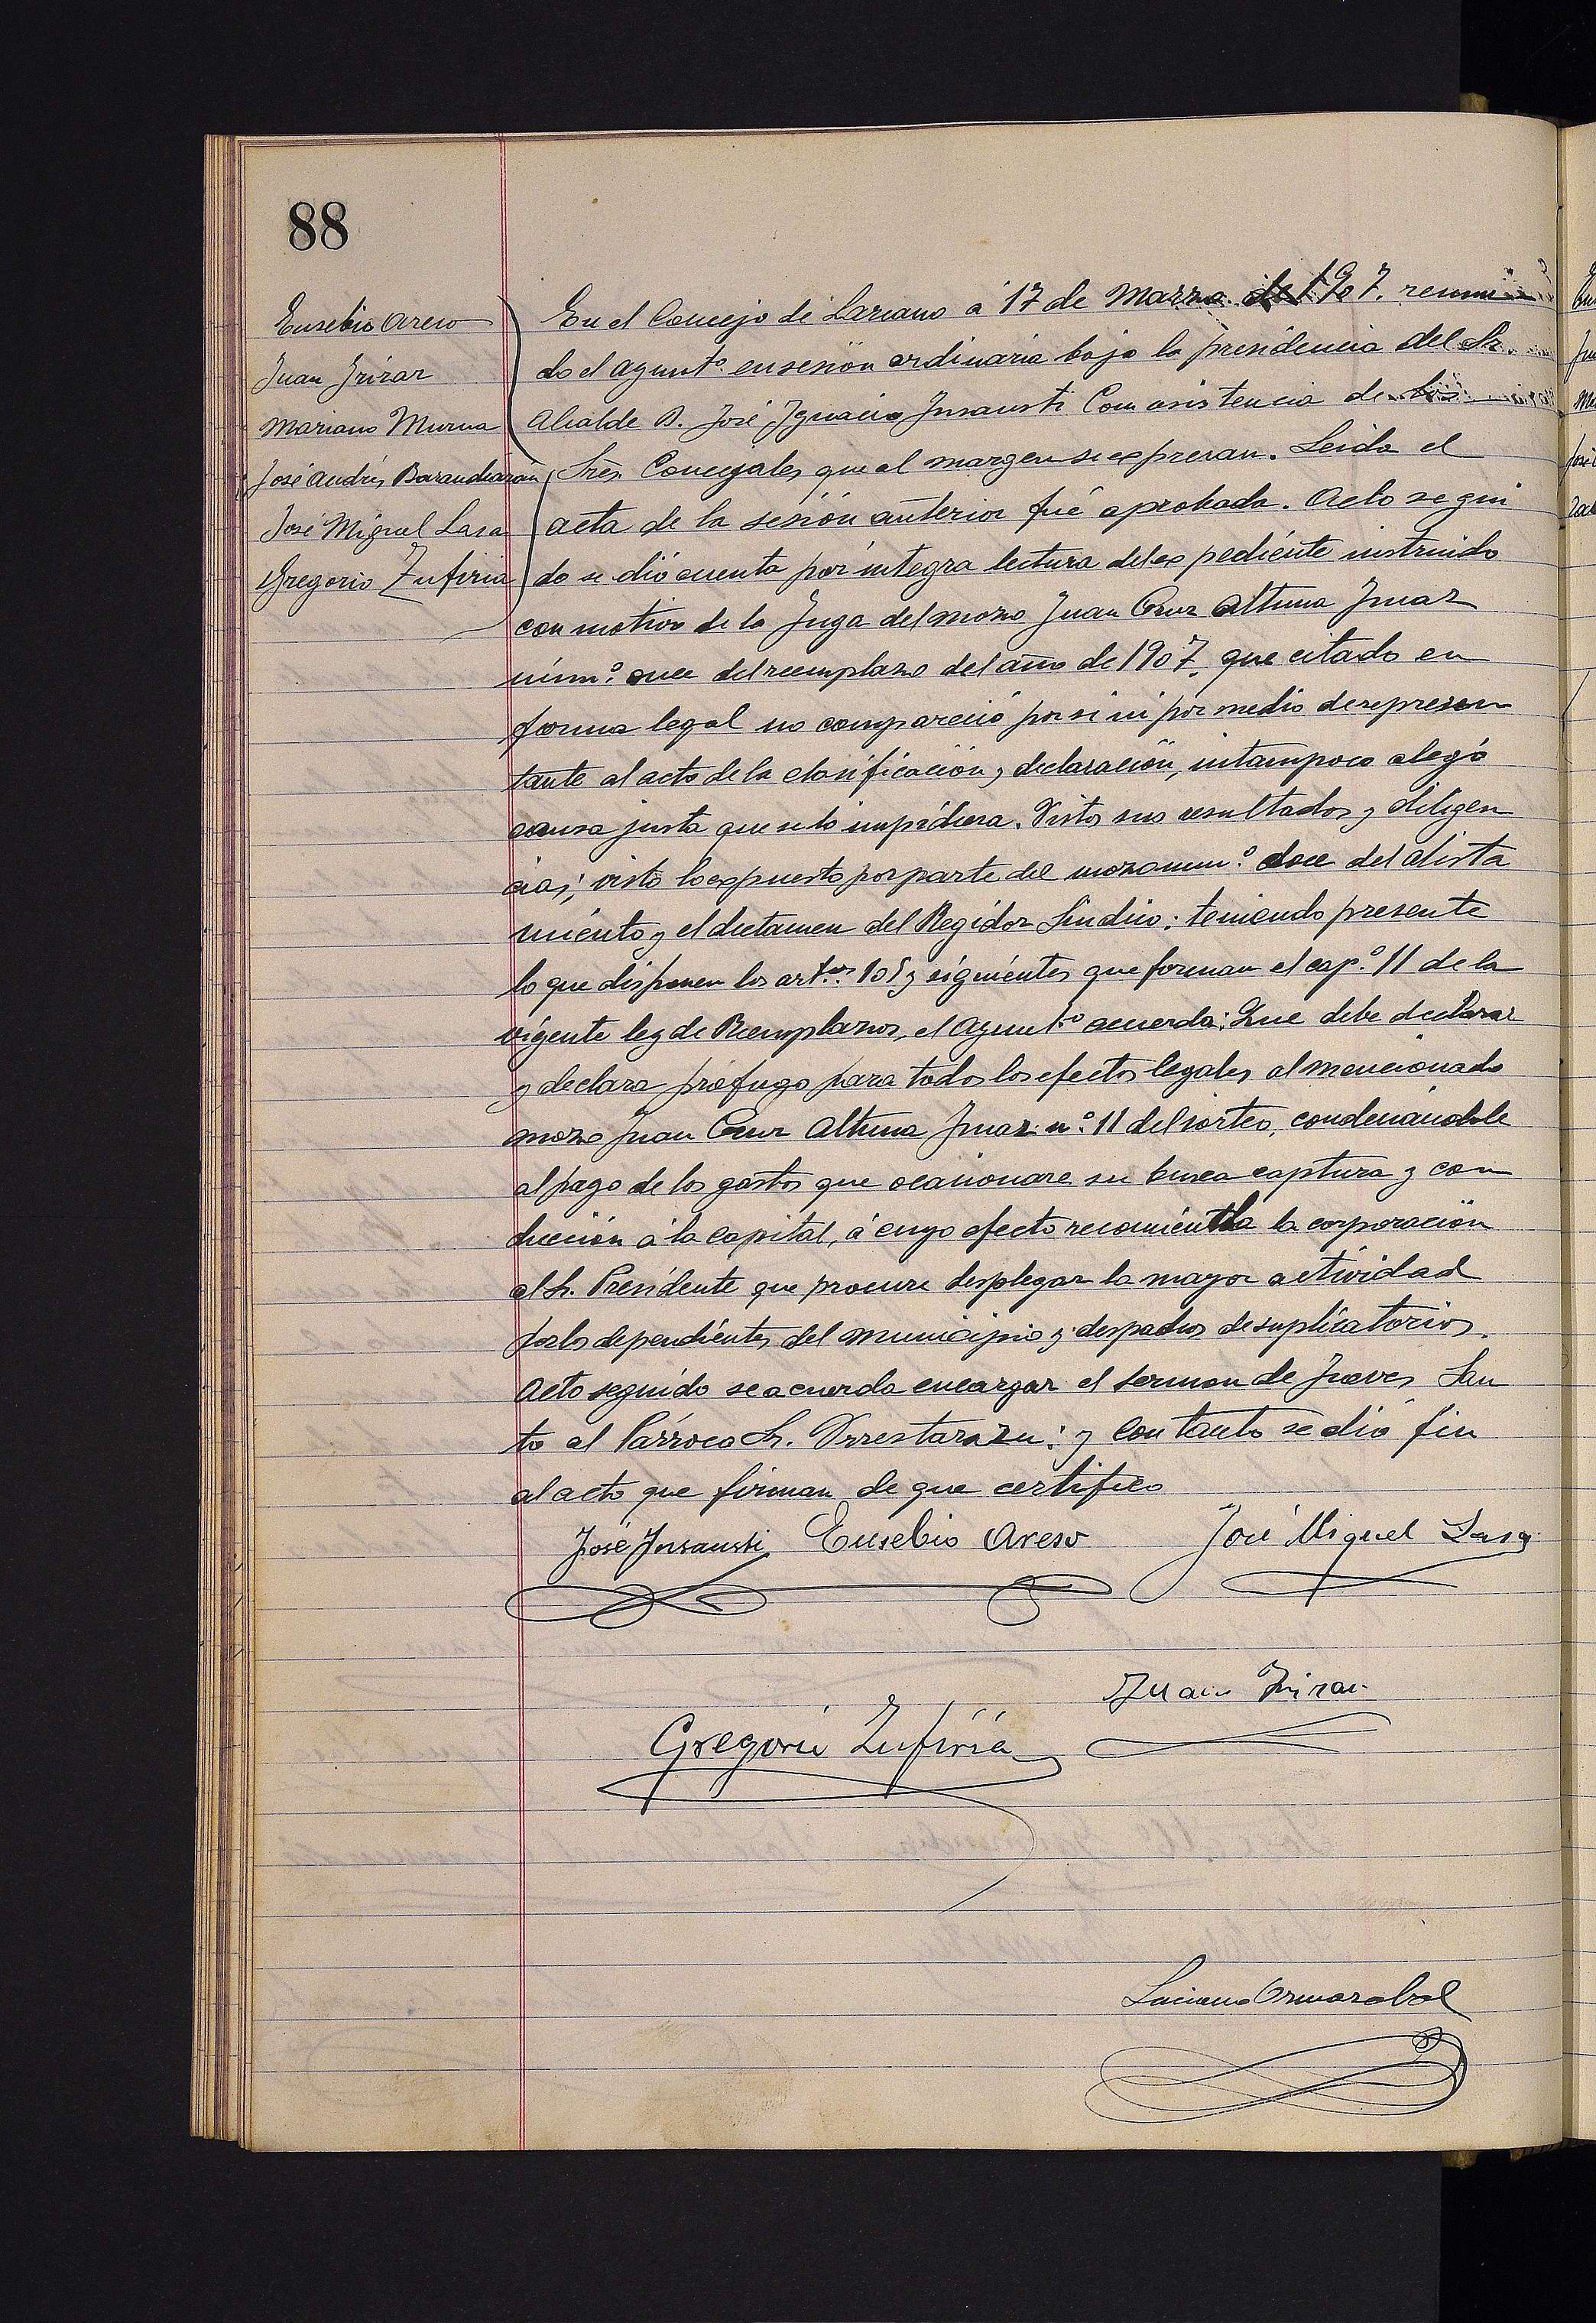 88
Eusebio Areso
Juan Irizar
Mariano Murua
José Andrés Barandiaran
José Miguel Lasa
Gregorio Zufiria
En el Concejo de Lazcano á 17 de Marzo de 1907. reuni
do el Ayunt.º en sesión ordinaria bajo la presidencia del Sr.
Alcalde D. José Ignacio Insausti Con asistencia de los
Sres. Concejales que al margen se expresan. Leida el
acta de la sesión anterior fué aprobada. Acto segui
do se dió cuenta por integra lectura del expediente instruido
con motivo de la fuga del mozo Juan Cruz Altuna Imaz
núm.º once del reemplazo del año de 1907, que citado en
forma legal no compareció por si ni por medio de represen
tante al acto de la clasificación y declaración, ni tampoco alegó
causa justa que se lo impidiera. Visto sus resultados y diligen
cias; visto lo expuesto por parte del mozo num.º doce del alista
miento y el dictamen del Regidor Sindico: teniendo presente
lo que disponen los art.os 105 y siguientes que forman el cap.º 11 de la
vigente ley de Reemplazos, el Ayunt.º acuerda: Que debe declarar
y declara prófugo para todos los efectos legales al mencionado
mozo Juan Cruz Altuna Imaz n.º 11 del sorteo, condenándole
al pago de los gastos que ocasionare su busca captura y con
ducción á la Capital, á cuyo efecto recomienda la corporación
al Sr. Presidente que procure desplegar la mayor actividad
por los dependientes del Municipio y despachos de suplicatorios.
Acto seguido se acuerda encargar el sermon de Jueves San
to al Párroco Sr. Urrestarazu: y con tanto se dió fin
al acto que firman de que certifico
José Insausti Eusebio Areso José Miguel Lasa
Juan Irizar
Gregorio Zufiria
Luciano Ormazabal